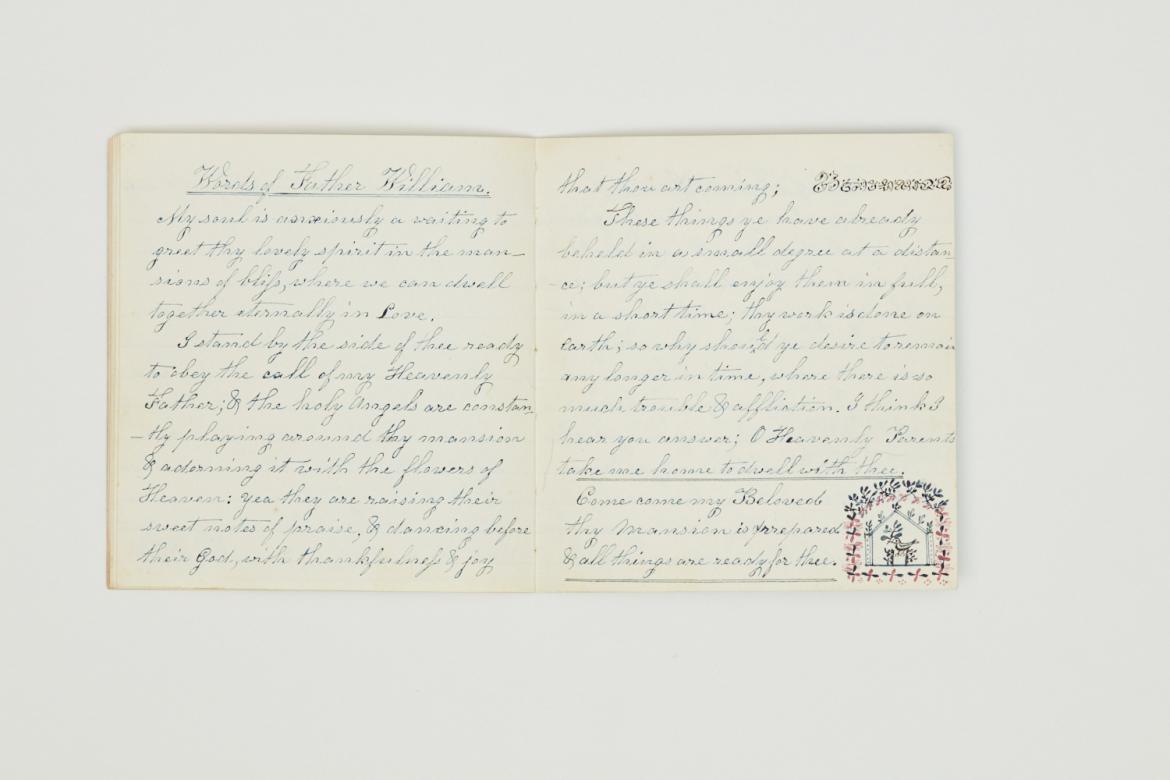 Words of Father William.
My soul is anxiously a waiting to
greet thy lovely spirit in the man-
sions of bliss, where we can dwell
together eternally in Love.
I stand by the side of thee ready
to obey the call of my Heavenly
Father; & the holy Angels are constan-
-tly playing around thy mansion
& adorning it with the flowers of
Heaven: yea they are raising their
sweet notes of praise, & dancing before
their God, with thankfulness & joy
that thou art coming;
These things ye have already
beheld in a small degree at a distan-
-ce; but ye shall enjoy them in full,
in a short time; thy work is done on
earth; so why should ye desire to remain
any longer in time, where there is so
much trouble & affliction. I think I
hear you answer; O Heavenly Parents
take me home to dwell with thee.
Come come my Beloved
thy Mansion is prepared
& all things are ready for thee.